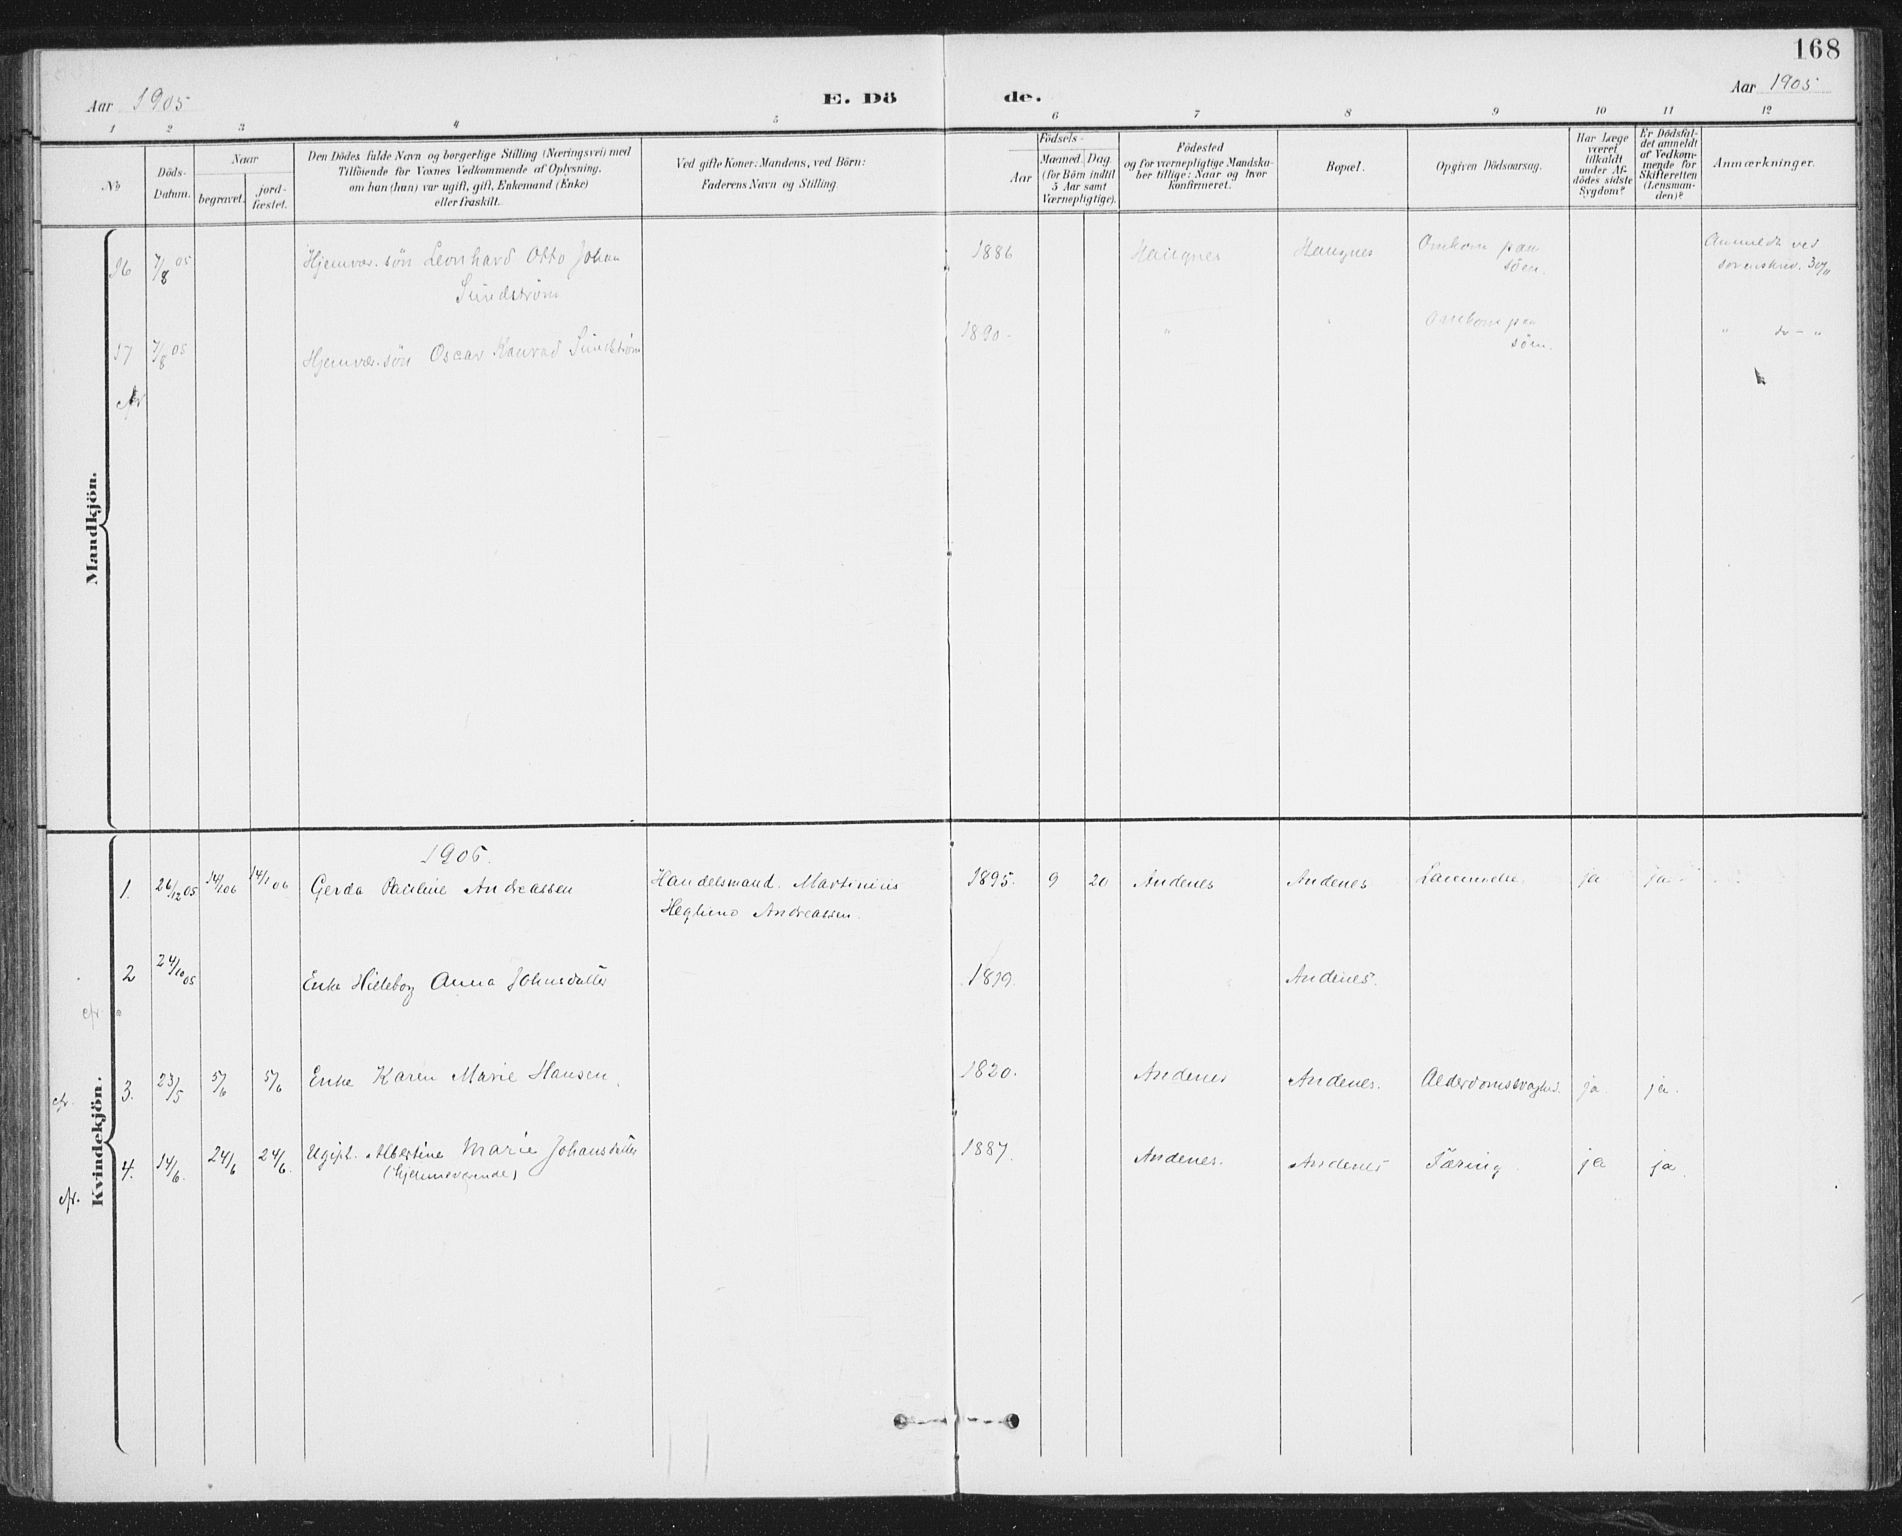 168
Aar 1905
E. Dö
de.
Aar 1905
1 2 3 4 5 6 7 8 9 10 11 12
No
Döds-
Datum.
Naar
begravet.
jord-
fæstet.
Den Dödes fulde Navn og borgerlige Stilling (Næringsvei) med
Tilföiende for Voxnes Vedkommende af Oplysning,
om han (hun) var ugift, gift, Enkemand (Enke)
eller fraskilt.
Ved gifte Koner: Mandens, ved Börn:
Faderens Navn og Stilling.
Födsels-
Aar
Maaned Dag
(for Börn indtil
5 Aar samt
Værnepligtige).
Födested
og for værnepligtige Mandska-
ber tillige: Naar og hvor
konfirmeret.
Bopæl.
Opgiven Dödsaarsag.
Har Læge
været
tilkaldt
under Af-
dödes sidste
Sygdom?
Er Dödsfal-
det anmeldt
af Vedkom-
mende for
Skifteretten
(Lensman-
den)?
Anmærkninger.
Mandkjön.
16 7/8 05 Hjemvær. søn Leonhard Otto Johan 1886 Haugnes Haugnes Omkom paa Anmeldt ved
Sundstrøm søen. sorenskriv. 30/11
17 7/8 05 Hjemvær. søn Oscar Konrad Sundstrøm 1890 - " " Omkom paa " do - "
søen.
Kvindekjön.
1906.
1. 26/12 05 14/1 06 14/1 06 Gerda Pauline Andreassen Handelsmand. Martinius 1895. 9 20 Andenes Andenes Lammelse. ja ja
Andreassen.
2 24/10 05 Enke Anna Johnsdatter 1819. Andenes.
cfr.
3. 23/5 5/6 5/6 Enke Karen Marie Hansen. 1820. Andenes Andenes. Alderdomssvaghed. ja ja.
cfr.
4. 14/6. 24/6 24/6. Ugift. Albertine Marie Johansdatter 1887. Andenes. Andenes Tæring. ja ja.
(hjemmeværende)
cfr.